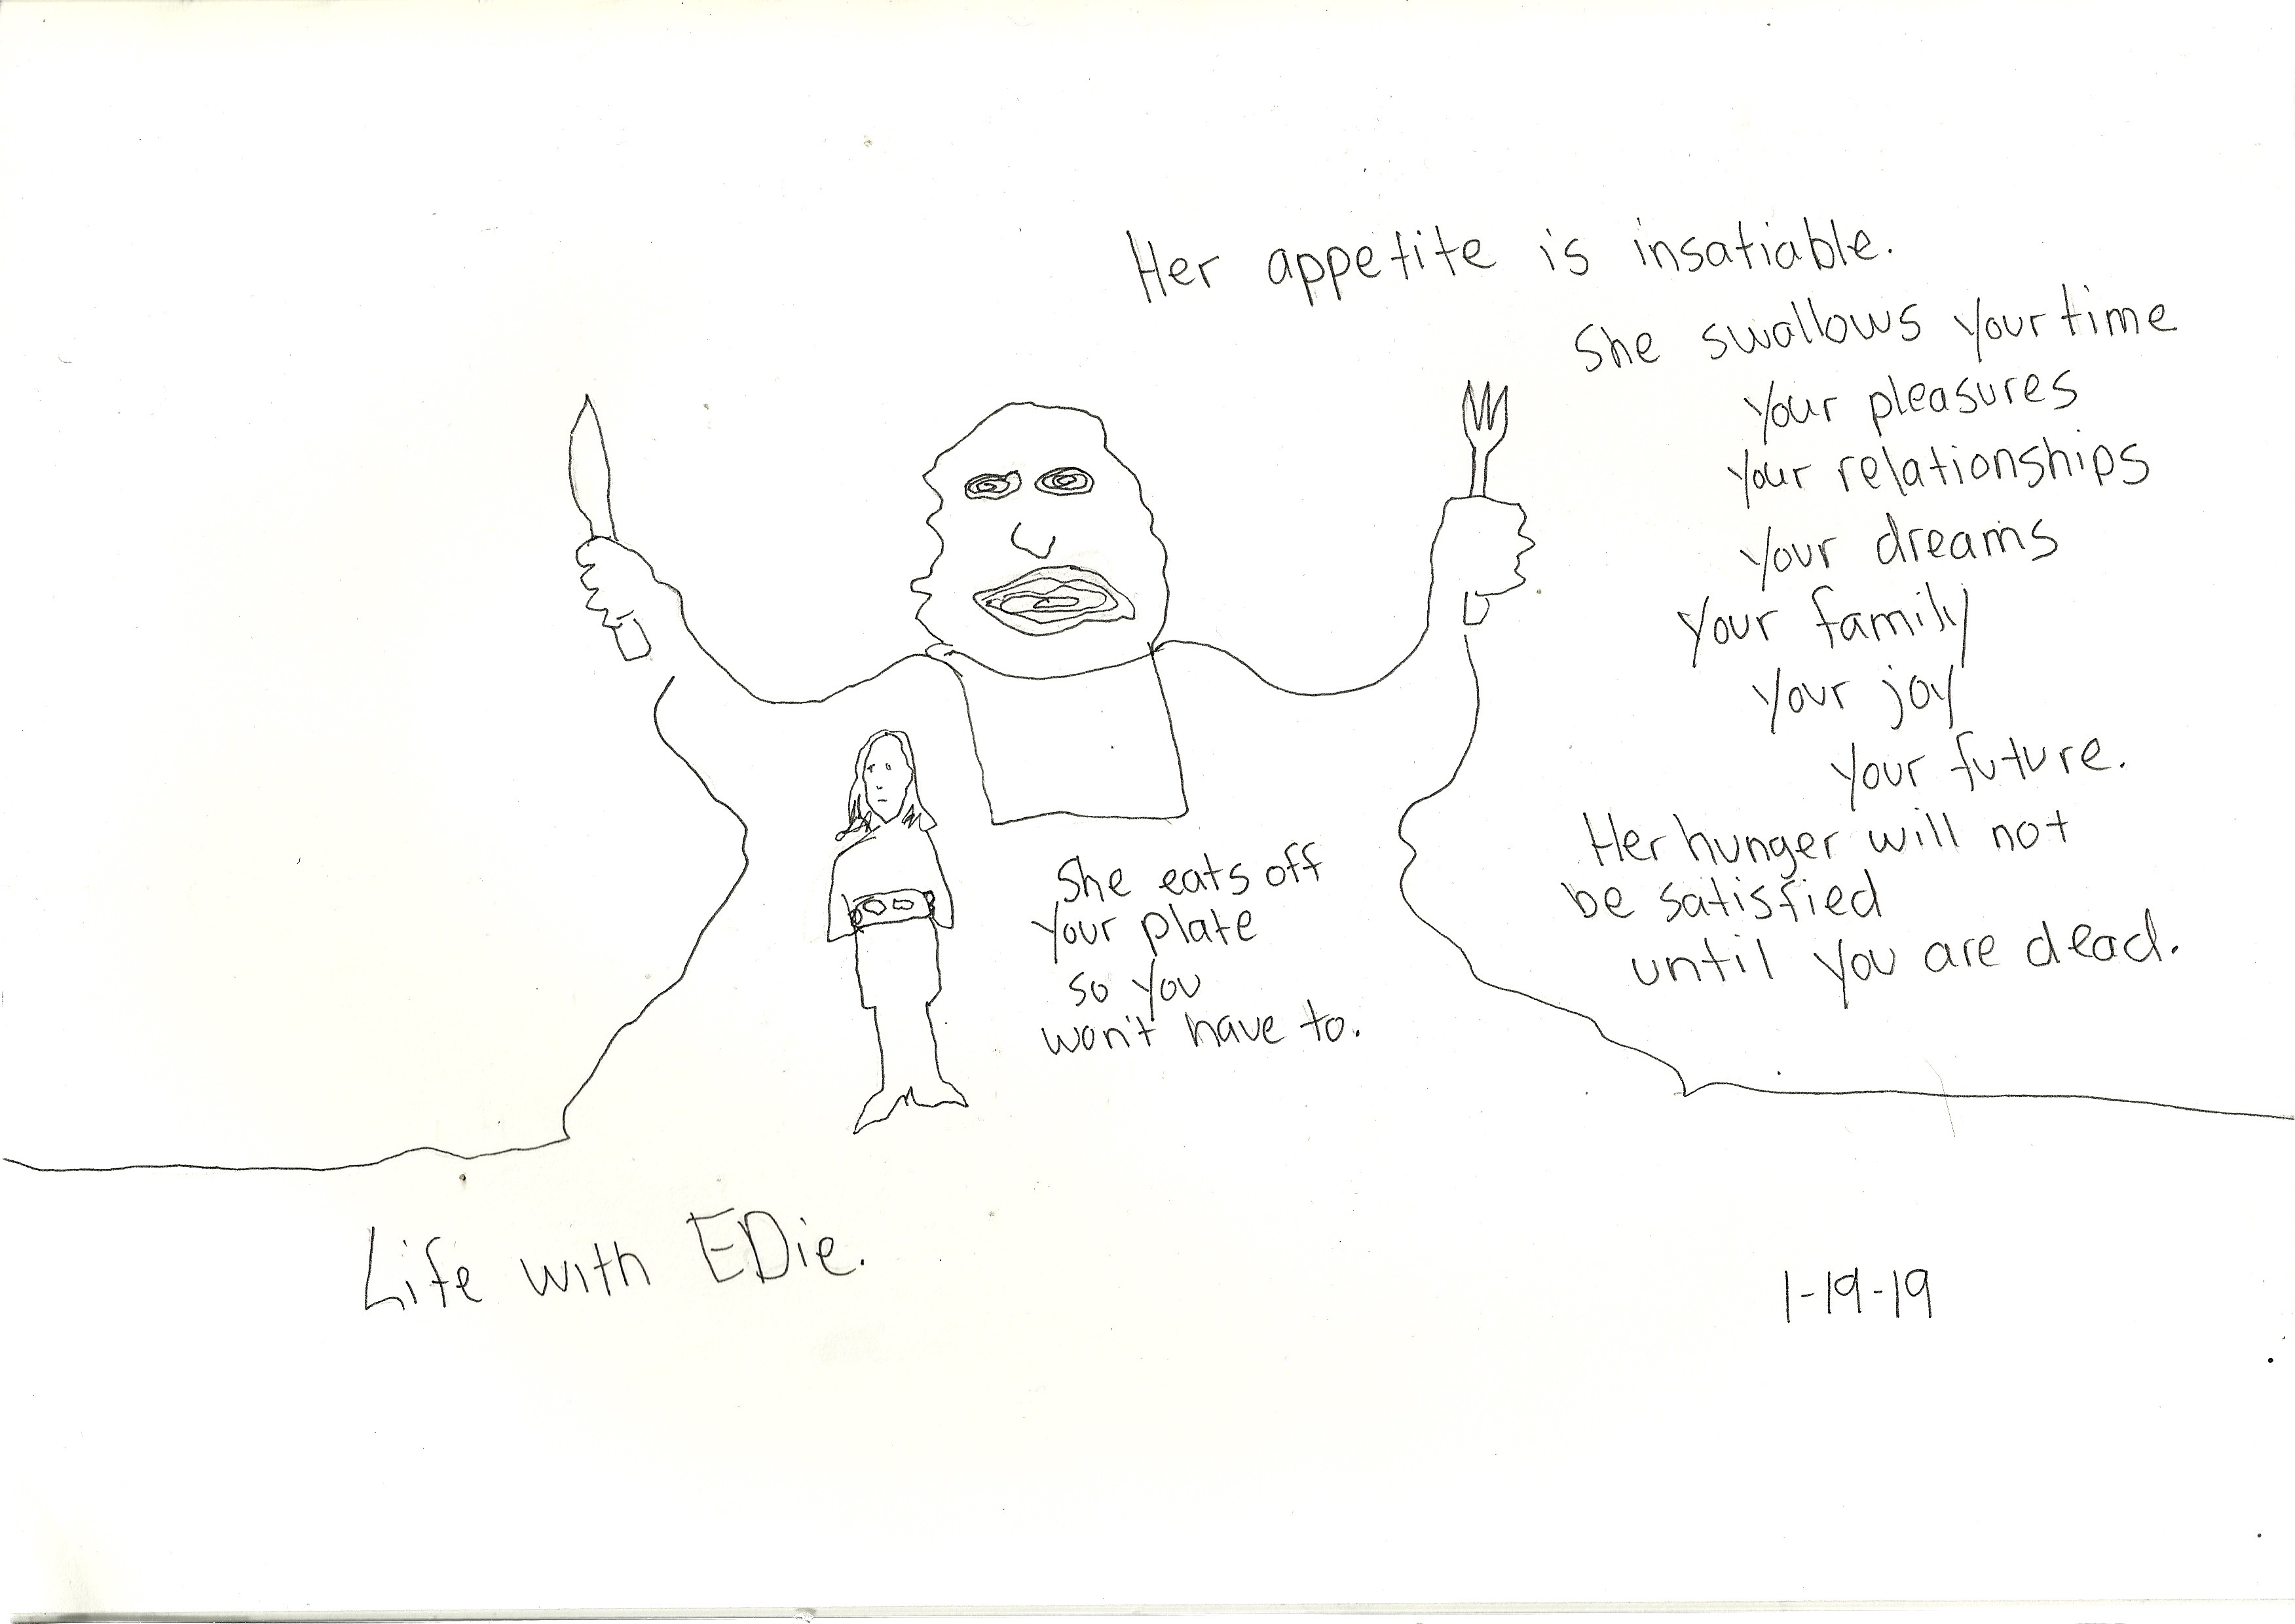 Her appetite is insatiable.
She swallows your time
your pleasures
your relationships
your dreams
your family
your joy
your future.
Her hunger will not
be satisfied
until you are dead.
She eats off
your plate
so you
won't have to.
Life with EDie.
1-19-19